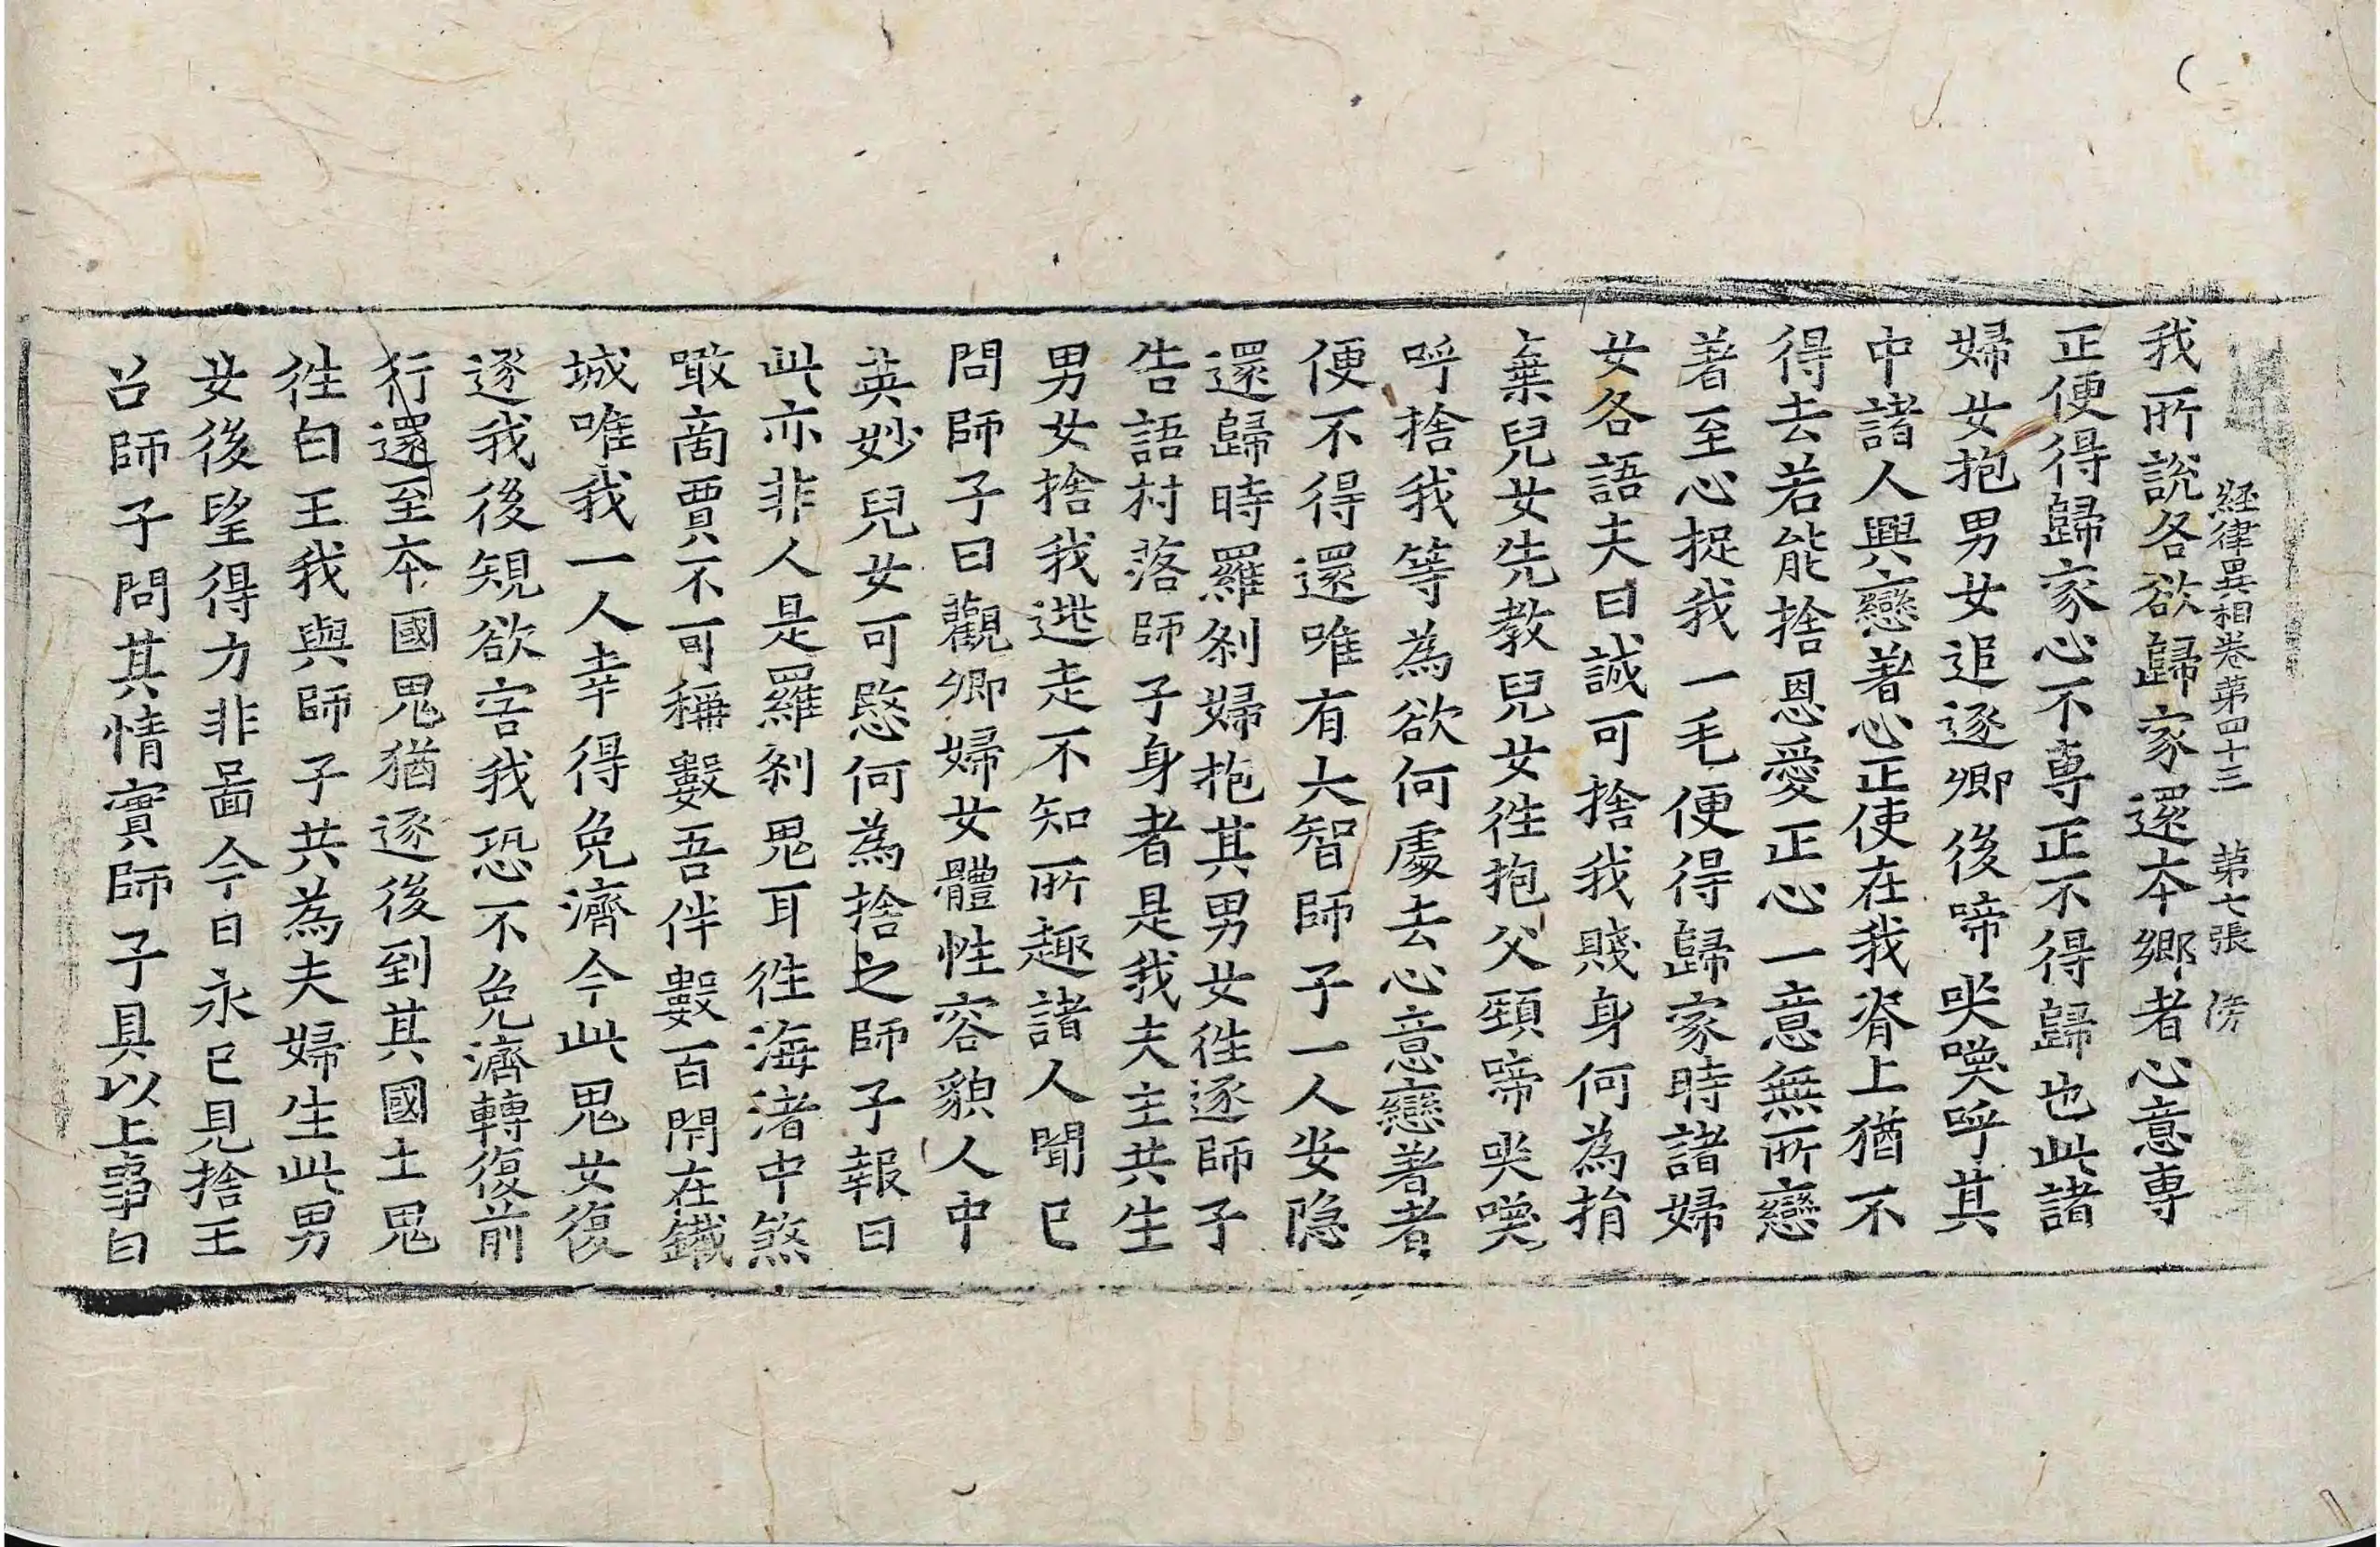 經律異相卷第四十三 第七張 傍
我所說各欲歸家還本鄉者心意專
正便得歸家心不專正不得歸也此諸
婦女抱男女追逐卿後啼哭喚呼其
中諸人興戀著心正使在我脊上猶不
得去若能捨恩愛正心一意無所戀
著至心捉我一毛便得歸家時諸婦
女各語夫曰誠可捨我賤身何為捐
棄兒女先教兒女徃抱父頸啼哭喚
呼捨我等為欲何處去心意戀著者
便不得還唯有大智師子一人安隱
還歸時羅剎婦抱其男女徃逐師子
告語村落師子身者是我夫主共生
男女捨我逃走不知所趣諸人聞已
問師子曰觀卿婦女體性容貌人中
英妙兒女可愍何為捨之師子報曰
此亦非人是羅剎鬼耳徃海渚中煞
噉啇賈不可稱數吾伴數百閇在鐵
城唯我一人幸得免濟今此鬼女復
逐我後䂓欲害我恐不免濟轉復前
行還至本國鬼猶逐後到其國土鬼
徃白王我與師子共為夫婦生此男
女後望得力非啚今日永已見捨王
召師子問其情實師子具以上事白